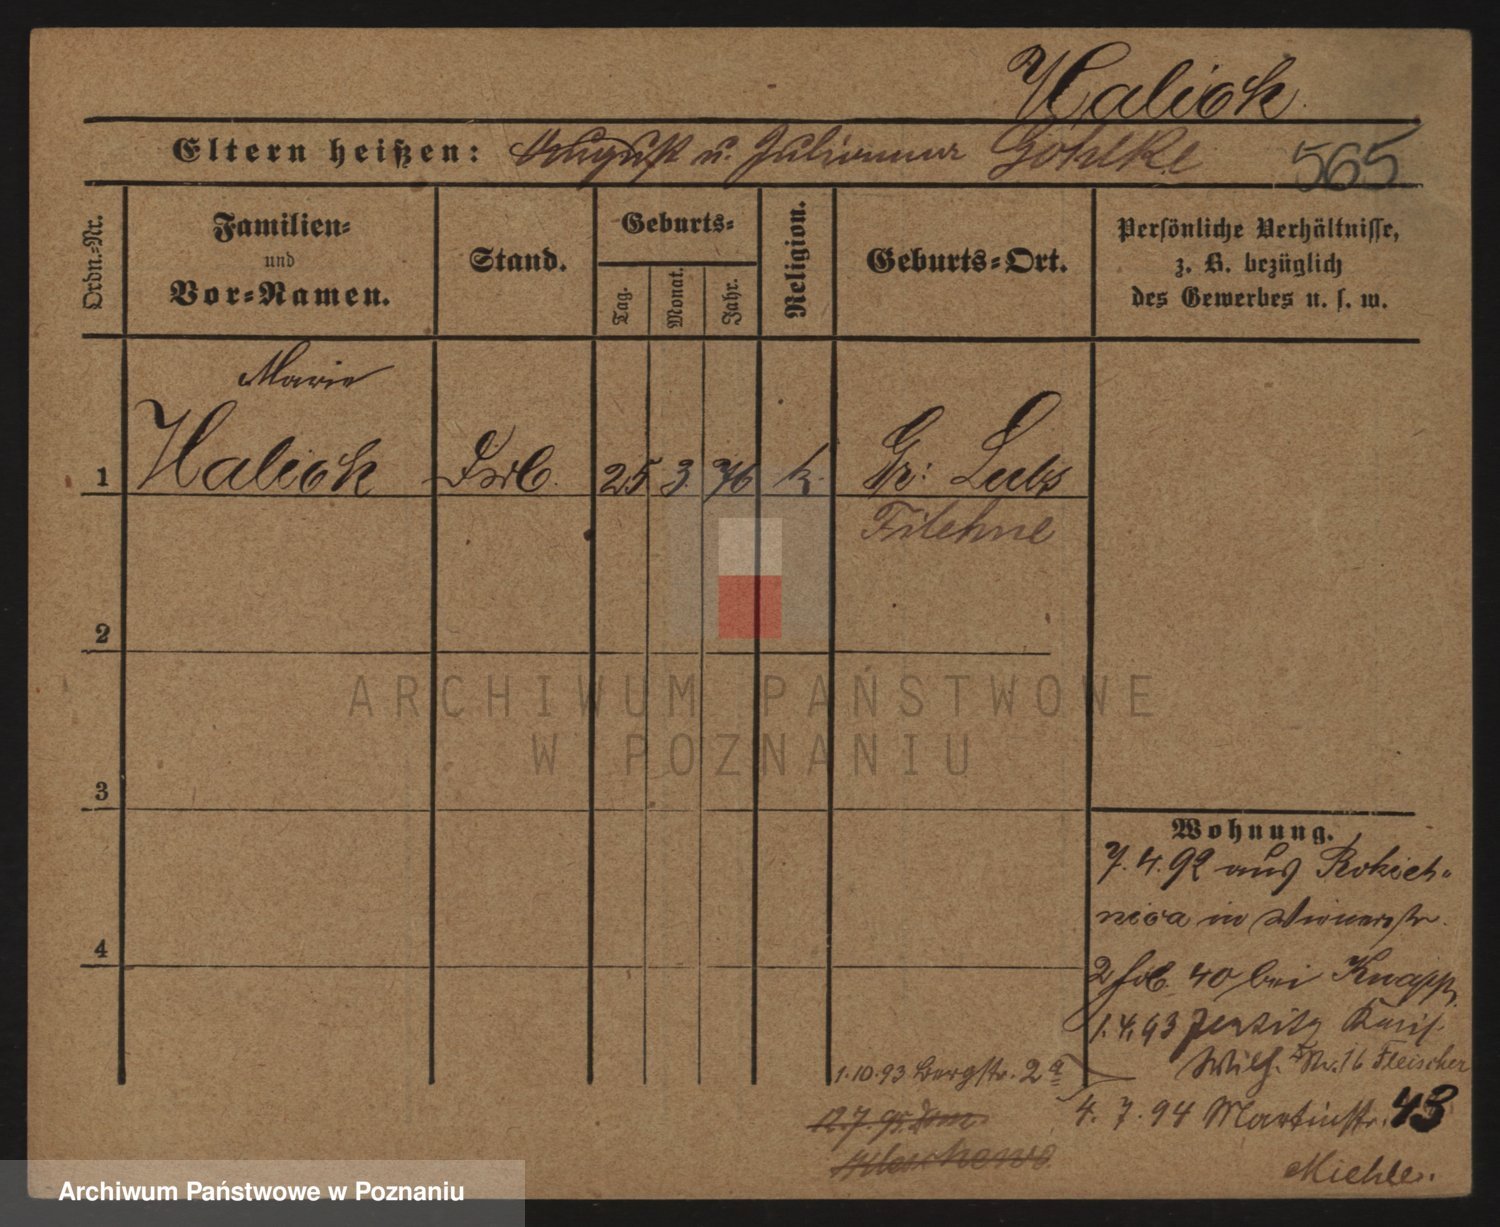 Halick
Eltern heißen: August u. Julianna Gohlke 565
Ordn.-Nr.
Familien- und Vor-Namen.
Stand.
Geburts-
Tag.
Monat.
Jahr.
Religion.
Geburts-Ort.
Persönliche Verhältnisse,
z. B. bezüglich
des Gewerbes u. s. w.
Marie
1 Halick 25 3 76 k. Gr: Lubs
Filehne
2
3
4
Wohnung.
7. 4. 92 aus Rokiet-
nica in Wienerstr.
40 bei Knapp.
1.4.93 Jersitz Kais.
Wilh. Str. 16 Fleischer
1.10.93 Bergstr. 2 a
4. 7. 94 Martinstr. 43
12.7.95
Miehle.
ARCHIWUM PAŃSTWOWE
W POZNANIU
Archiwum Państwowe w Poznaniu